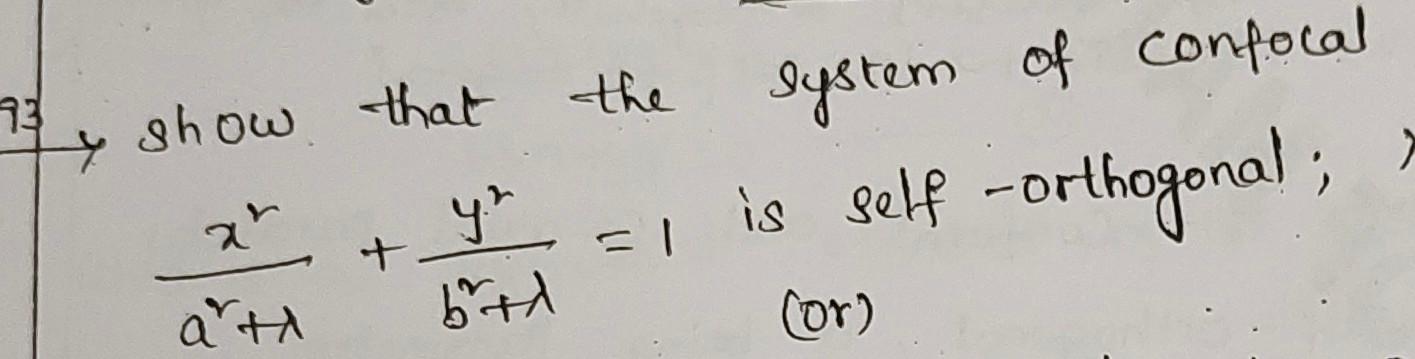 93 → show that the system of confocal
x²/(a²+λ) + y²/(b²+λ) = 1 is self-orthogonal;
(or)